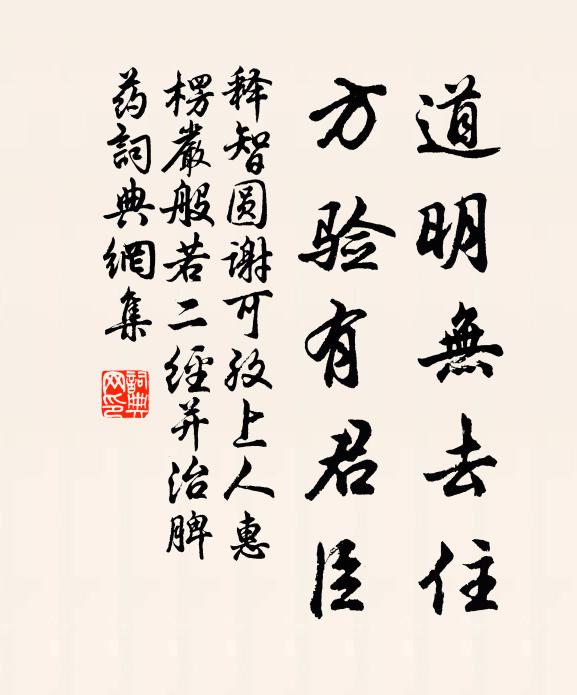 道明無去住
方验有君臣
释智圆谢可孜上人惠
楞嚴般若二經并治脾
药詞典網集
詞典
网印